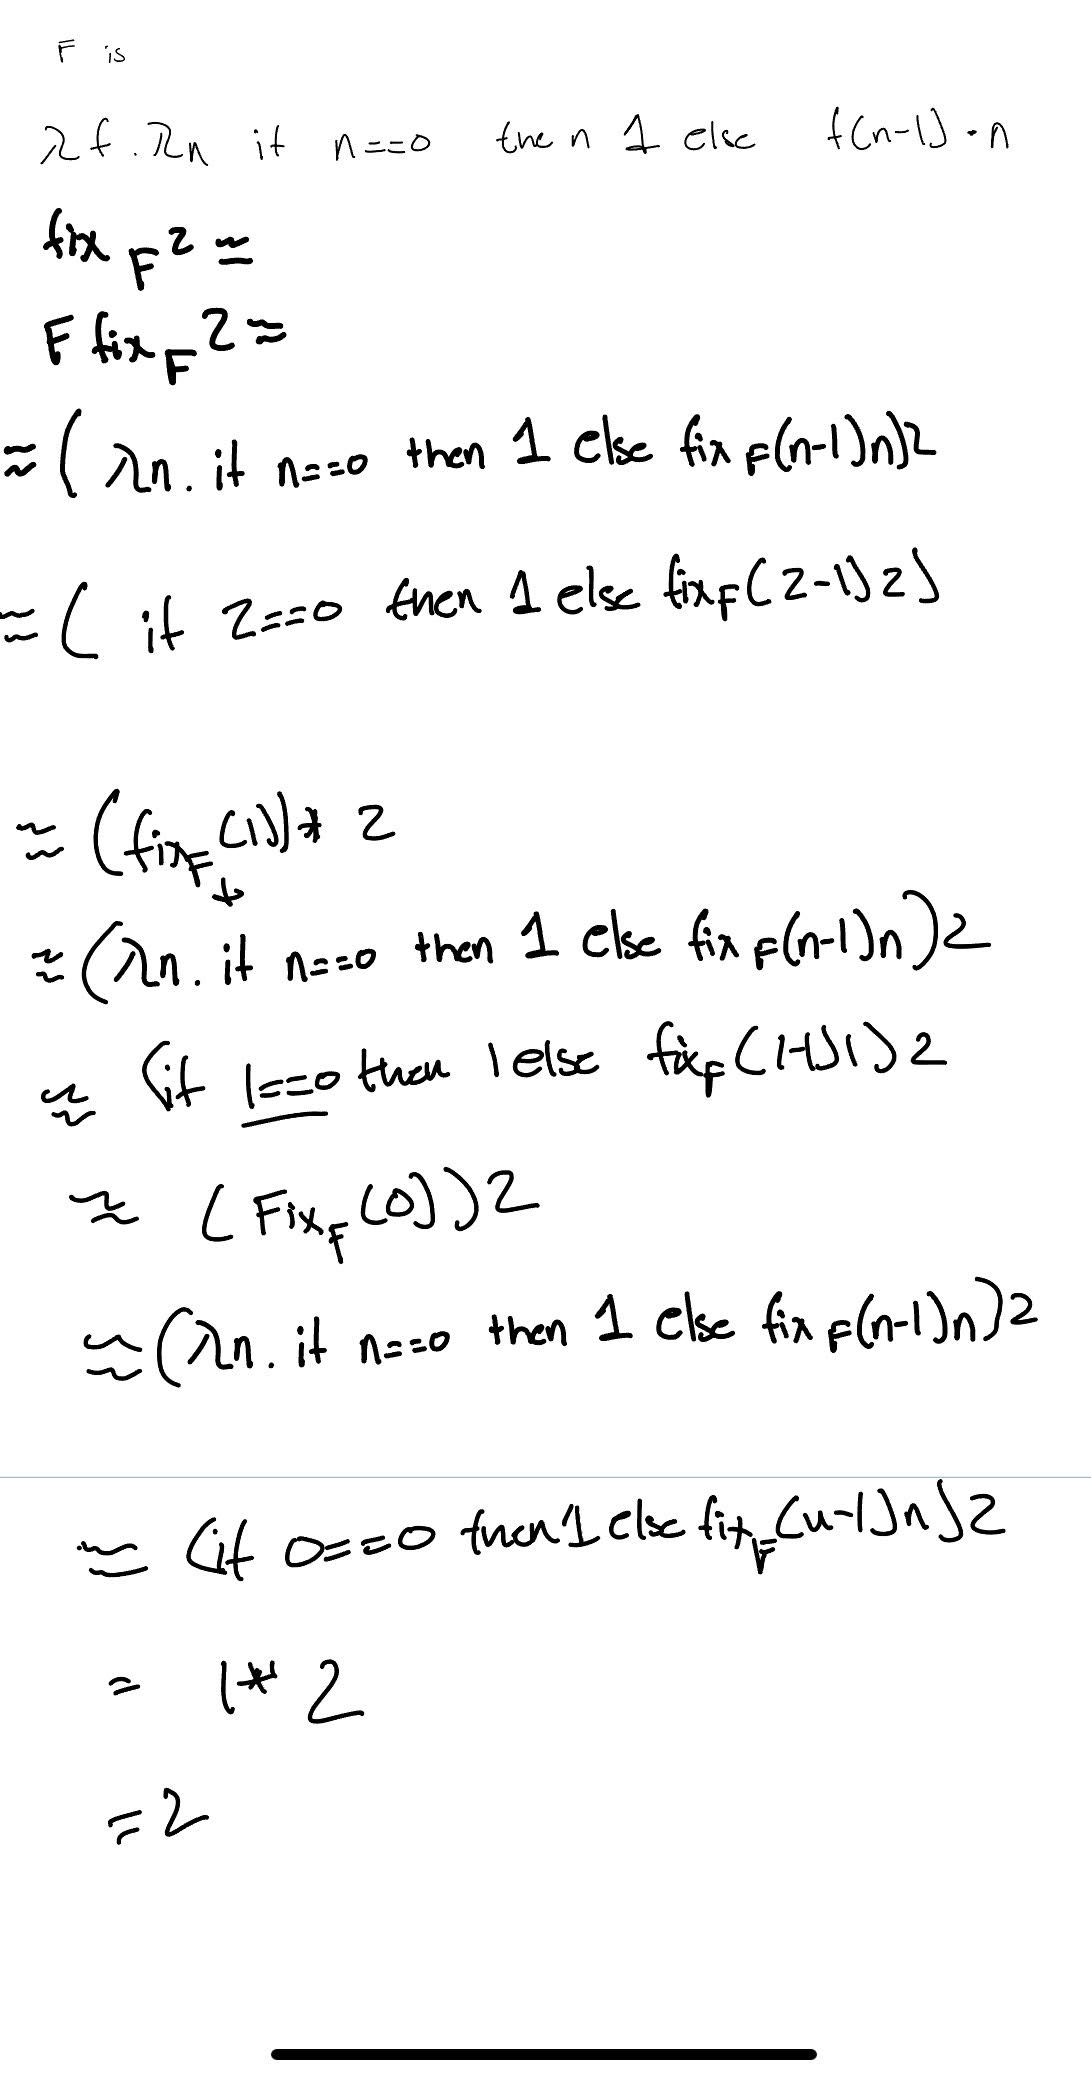 F is
λf. λn if n==0 then 1 else f(n-1)·n
fix F 2 ≈
F fix F 2 ≈
≈ ( λn. if n==0 then 1 else fix F(n-1)n)2
≈ ( if 2==0 then 1 else fix F(2-1)2)
≈ (fix F (1))* 2
≈ (λn. if n==0 then 1 else fix F(n-1)n)2
≈ (if 1==0 then 1 else fix F(1-1)1)2
≈ (Fix F (0))2
≈ (λn. if n==0 then 1 else fix F(n-1)n)2
≈ (if 0==0 then 1 else fix F(n-1)n)2
= 1* 2
= 2